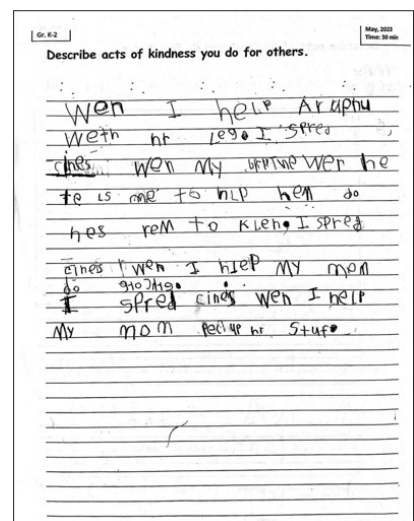 Gr. K-2
May, 2023
Time: 30 min
Describe acts of kindness you do for others.
Wen I help Aruphu
Weth hr Lego I spred
cines wen My wer he
te is me to hlp hem do
hes rem to kleng I spred
cines wen I hlep My mom
do
I spred cines wen I help
My mom pecl up hr stuf.